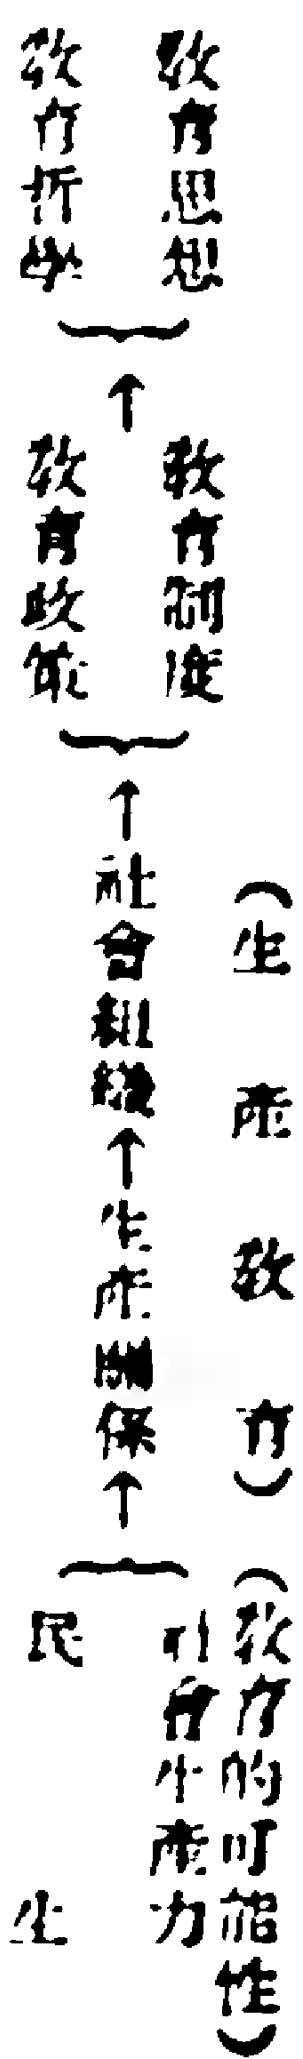 (生產教育)
(教育的可能性)
教育思想
教育哲學
↑
教育制度
教育政策
↑
社會組織
↑
生產關係
↑
社會生產力
民生